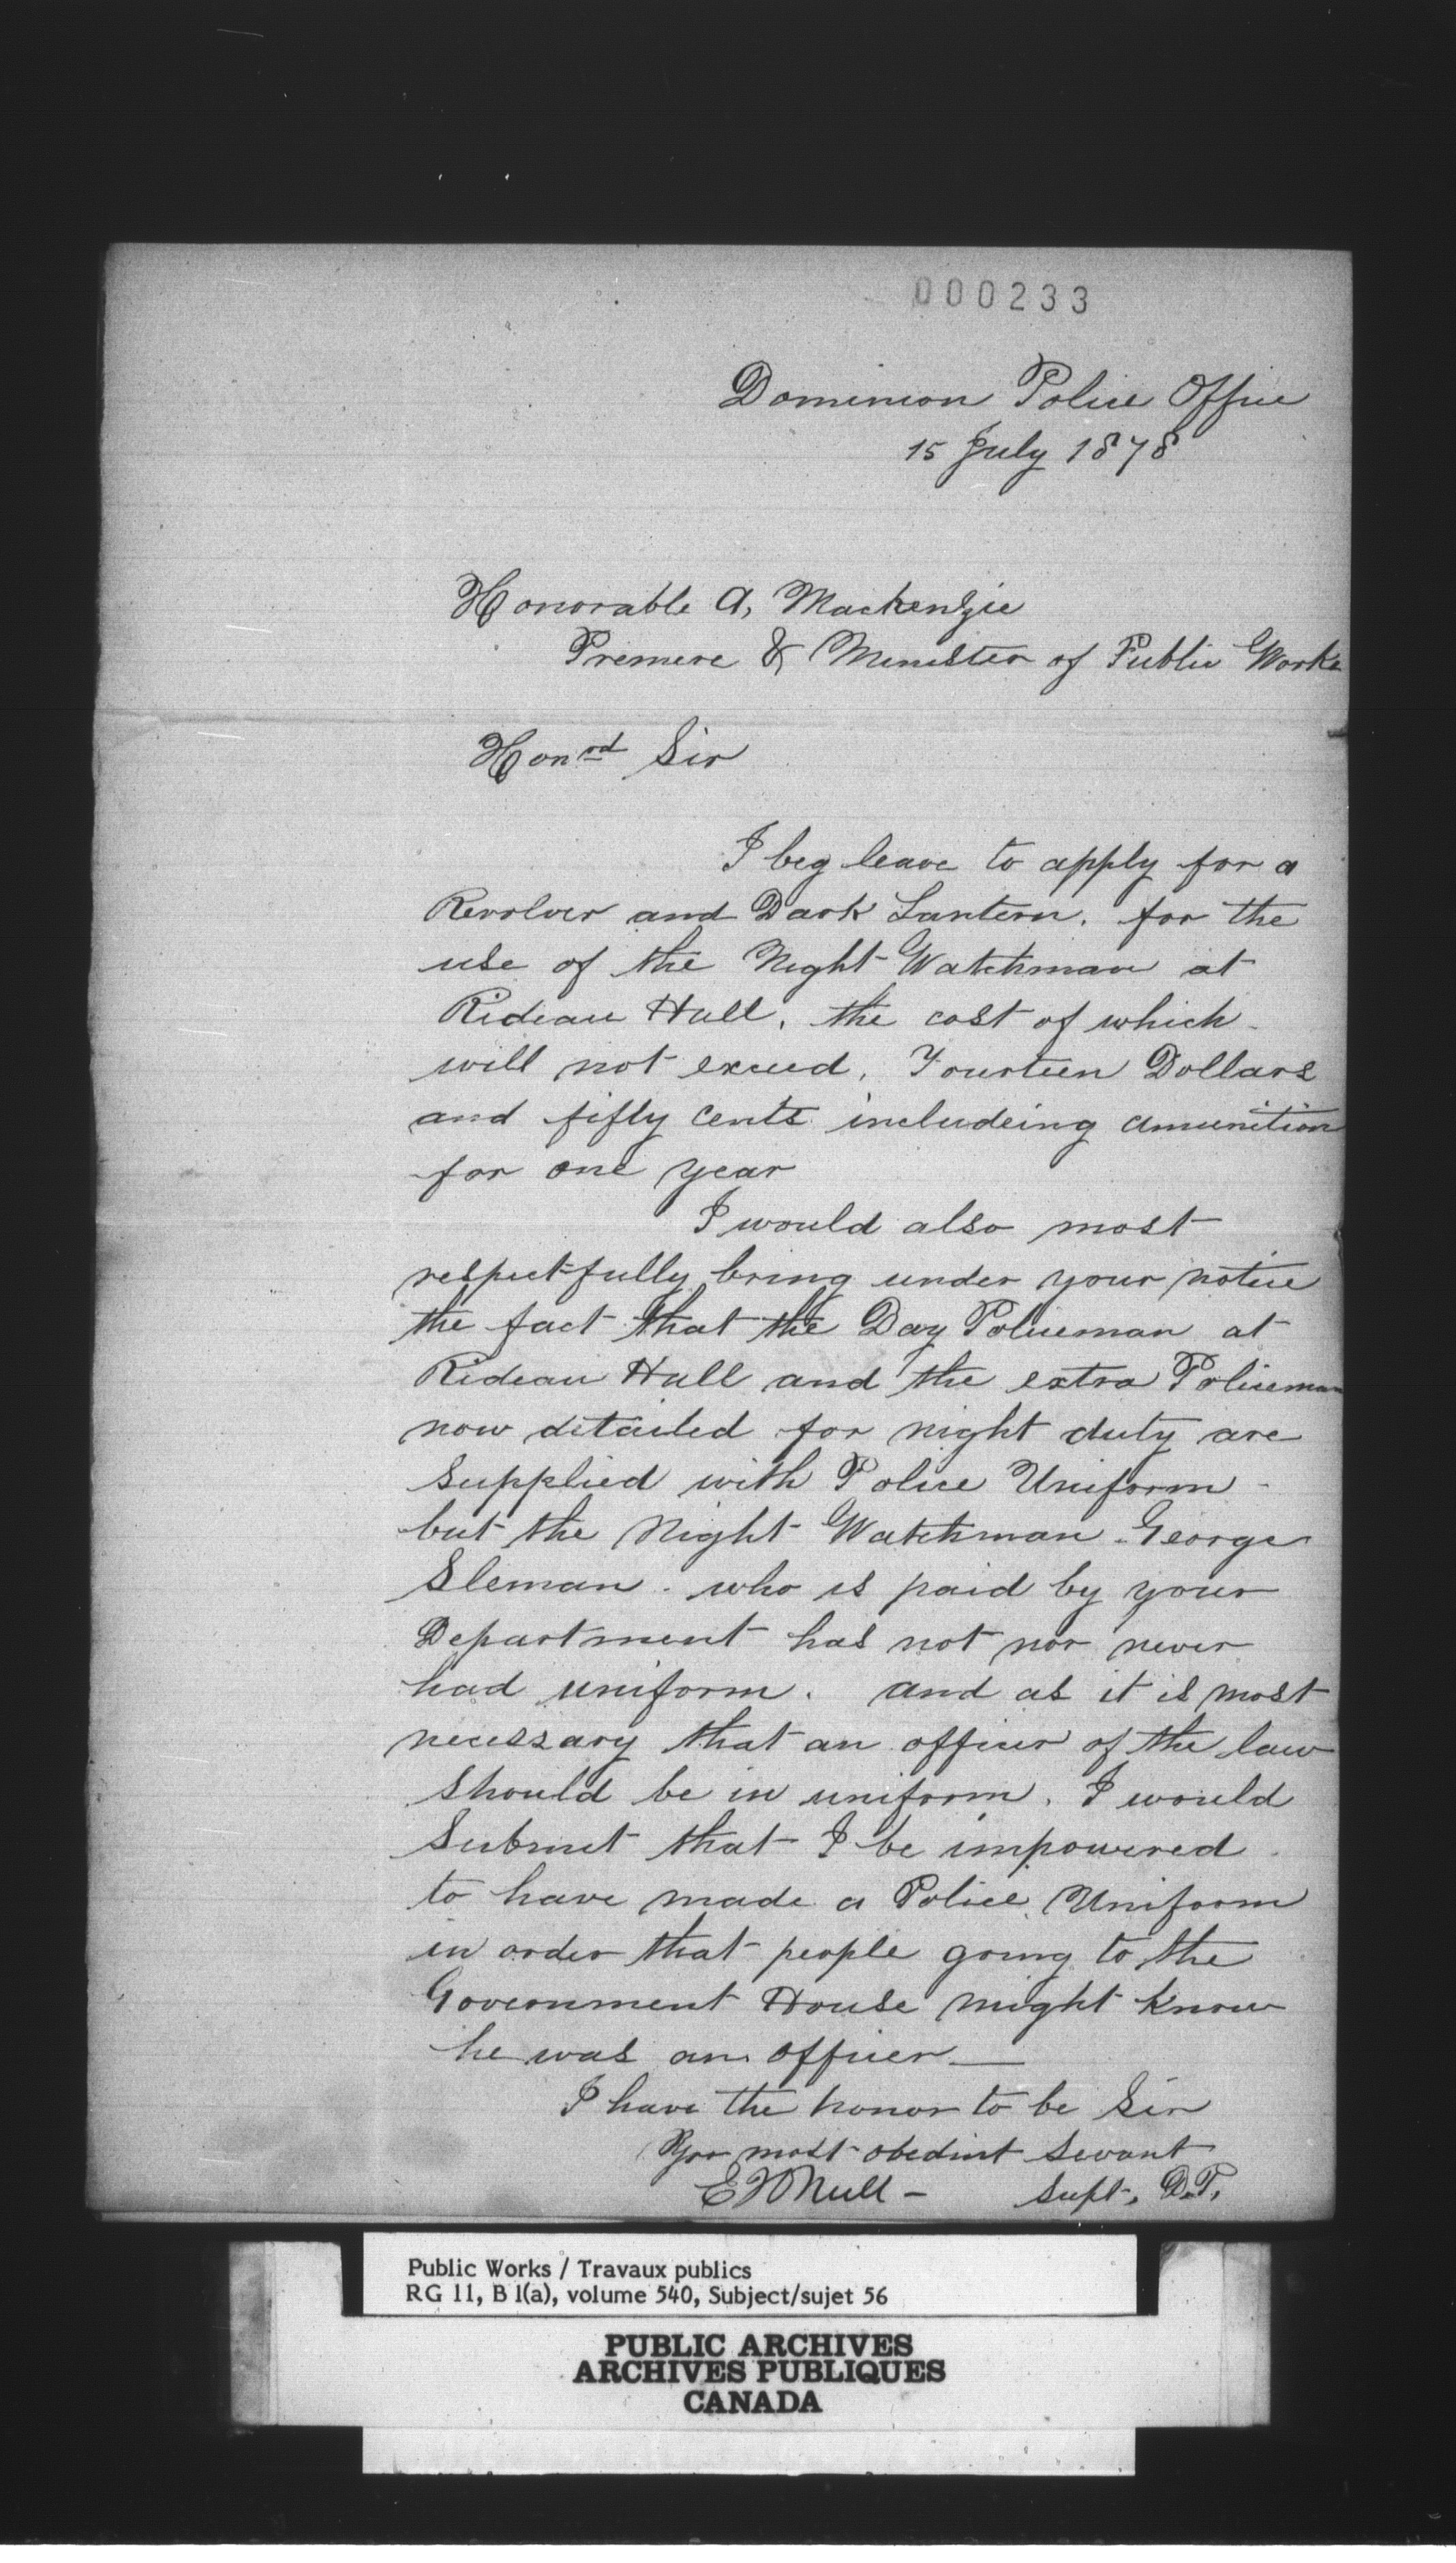 000233
Dominion Police Office
15 July 1878
Honorable A, Mackenzie
Premiere & Minister of Public Works
Honrd Sir
I beg leave to apply for a
Revolver and Dark Lantern. for the
use of the Night Watchman at
Rideau Hall, the cost of which
will not exceed, Fourteen Dollars
and fifty cents includeing amunition
for one year
I would also most
respectfully bring under your notice
the fact that the Day Policeman at
Rideau Hall and the extra Policeman
now detailed for night duty are
supplied with Police Uniform -
but the Night Watchman - George
Sleman - who is paid by your
Department has not nor never
had uniform. and as it is most
necessary that an officer of the law
should be in uniform, I would
Submit that I be impowered
to have made a Police Uniform
in order that people going to the
Government House might know
he was an officer —
I have the honor to be Sir
Your most obedint servant
Supt, D.P,
Public Works / Travaux publics
RG 11, B 1(a), volume 540, Subject/sujet 56
PUBLIC ARCHIVES
ARCHIVES PUBLIQUES
CANADA